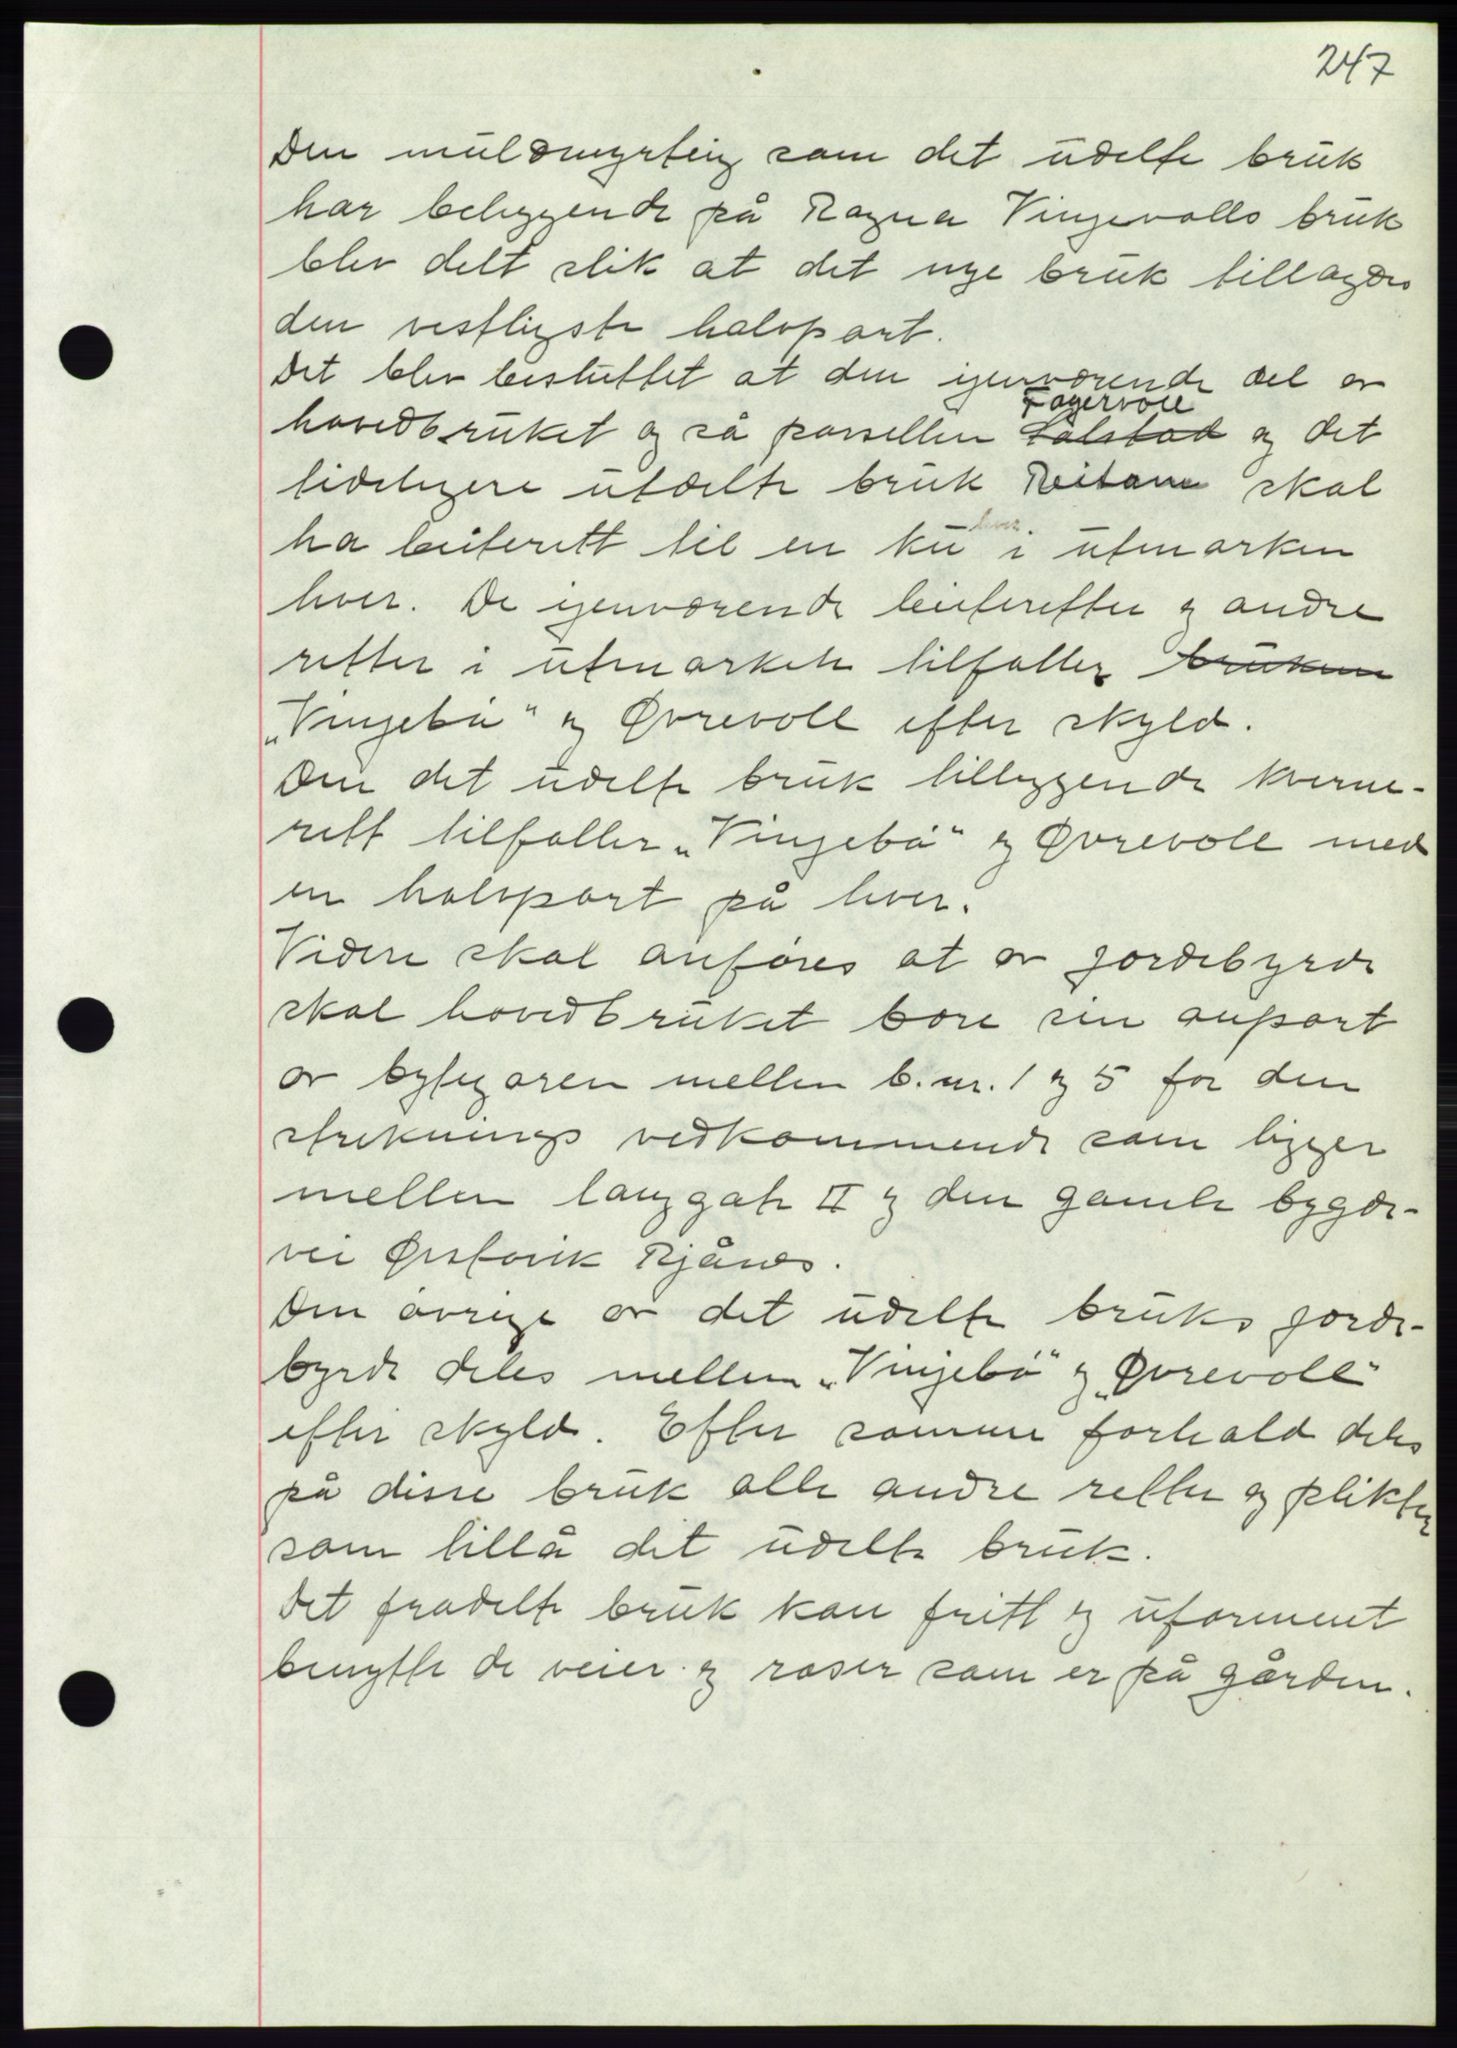 247
Den muldmyrteig som det udelte bruk
har beliggende på Ragna Vingevolls bruk
blev delt slik at det nye bruk tillagdes
den vestligste halvpart.
Det blev besluttet at den igenværende del av
Fagervoll
hovedbruket og så parsellen Solstad og det
tidligere utdelte bruk Reitane skal
hver
ha beiterett til en ku i utmarken
hver. De igenværende beiteretter og andre
retter i utmarken tilfaller brukene
"Vingebö" og Øvrevoll efter skyld.
Den det udelte bruk tilliggende kverne-
rett tilfaller "Vingebö" og Øvrevoll med
en halvpart på hver.
Videre skal anföres at av jordebyrde
skal hovedbruket bære sin anpart
av bytegaren mellem b.nr. 1 og 5 for den
streknings vedkommende som ligger
mellem langgate II og den gamle bygde-
vei Ørstavik Rjånes.
Den övrige av det udelte bruks jorde-
byrde deles mellem "Vingebö" og "Øvrevoll"
efter skyld. Efter samme forhold deles
på disse bruk alle andre retter og plikter
som tillå det udelte bruk.
Det fradelte bruk kan fritt og uforment
benytte de veier og raser som er på gården.